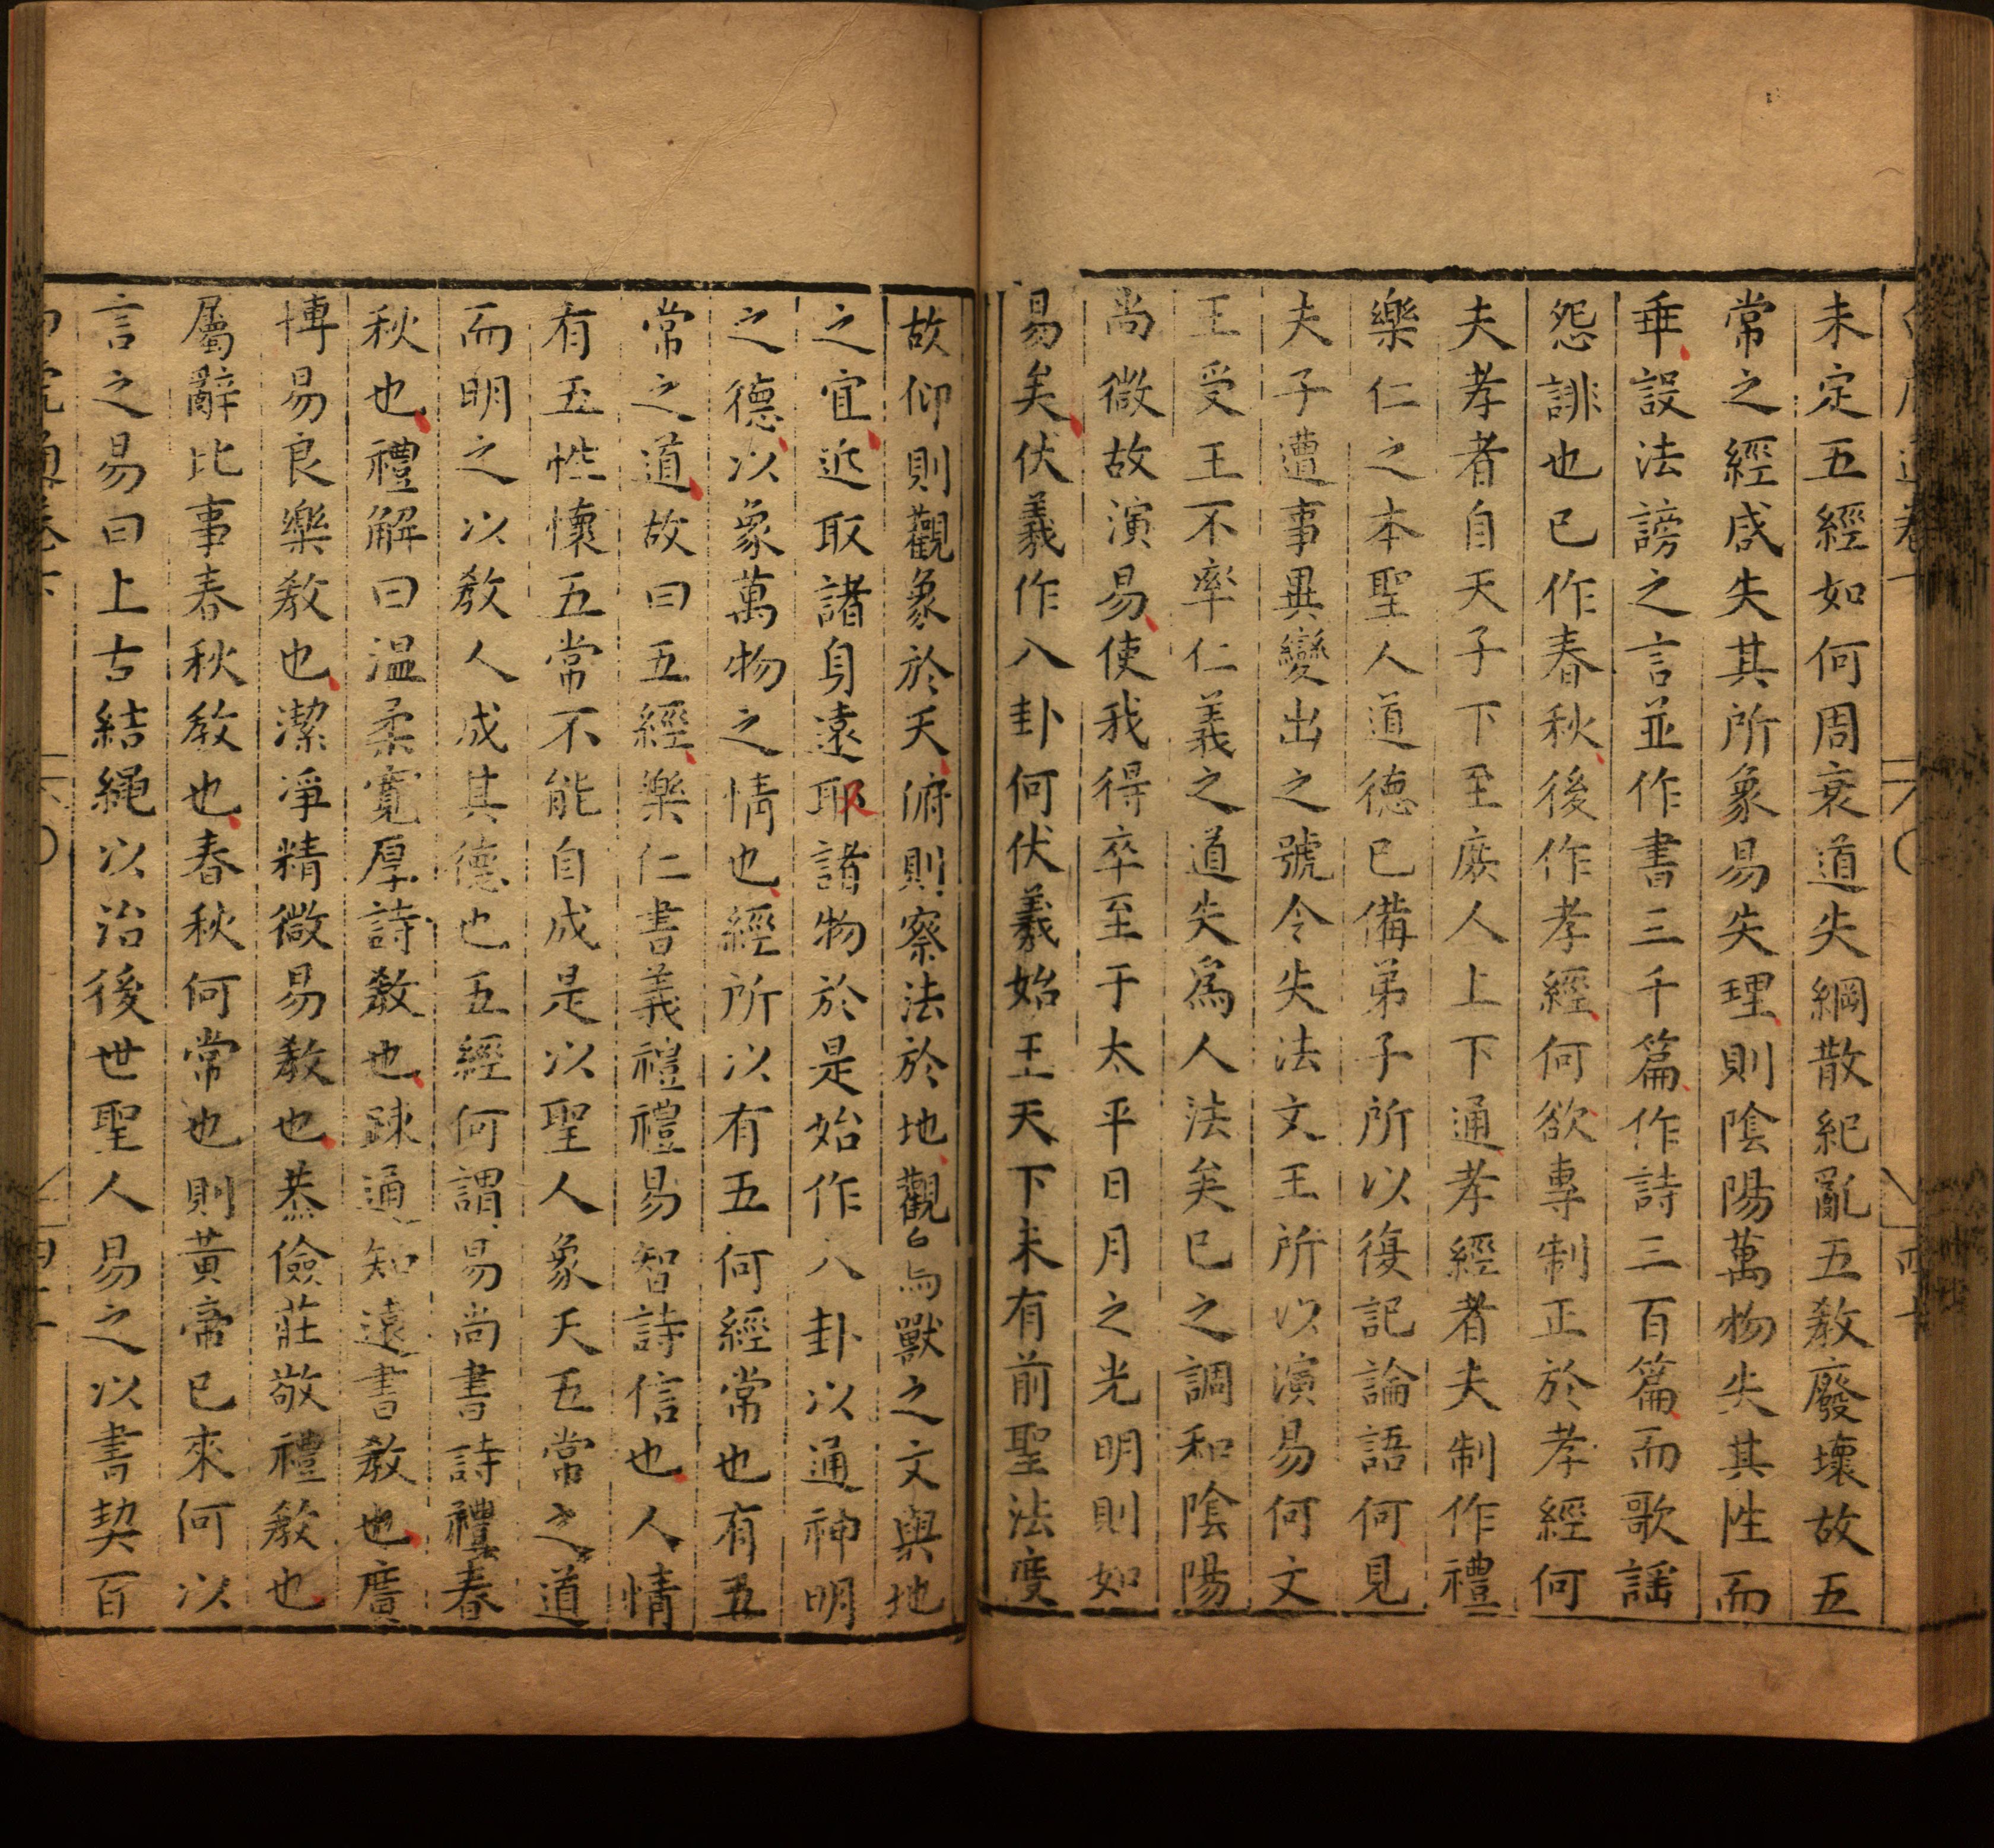 未定五經如何周衰道失綱散紀亂五教廢壞故五
常之經咸失其所象易失理則陰陽萬物失其性而
乖設法謗之言並作書三千篇作詩三百篇而歌謡
怨誹也已作春秋後作孝經何欲專制正於孝經何
夫孝者自天子下至庻人上下通孝經者夫制作禮
樂仁之本聖人道德已備弟子所以復記論語何見
夫子遭事異變出之號令失法文王所以演易何文
王受王不率仁義之道失爲人法矣已之調和陰陽
尚微故演易使我得卒至于太平日月之光明則如
易矣伏羲作八卦何伏羲始王天下未有前聖法度
故仰則觀象於天俯則察法於地觀鳥獸之文與地
之宜近取諸身遠取諸物於是始作八卦以通神明
之德以象萬物之情也經所以有五何經常也有五
常之道故曰五經樂仁書義禮禮易智詩信也人情
有五性懷五常不能自成是以聖人象天五常之道
而明之以教人成其德也五經何謂易尚書詩禮春
秋也禮解曰温柔寬厚詩教也踈通知遠書教也廣
博易良樂教也潔淨精微易教也恭儉莊敬禮教也
屬辭比事春秋教也春秋何常也則黃帝已來何以
言之易曰上古結繩以治後世聖人易之以書契百